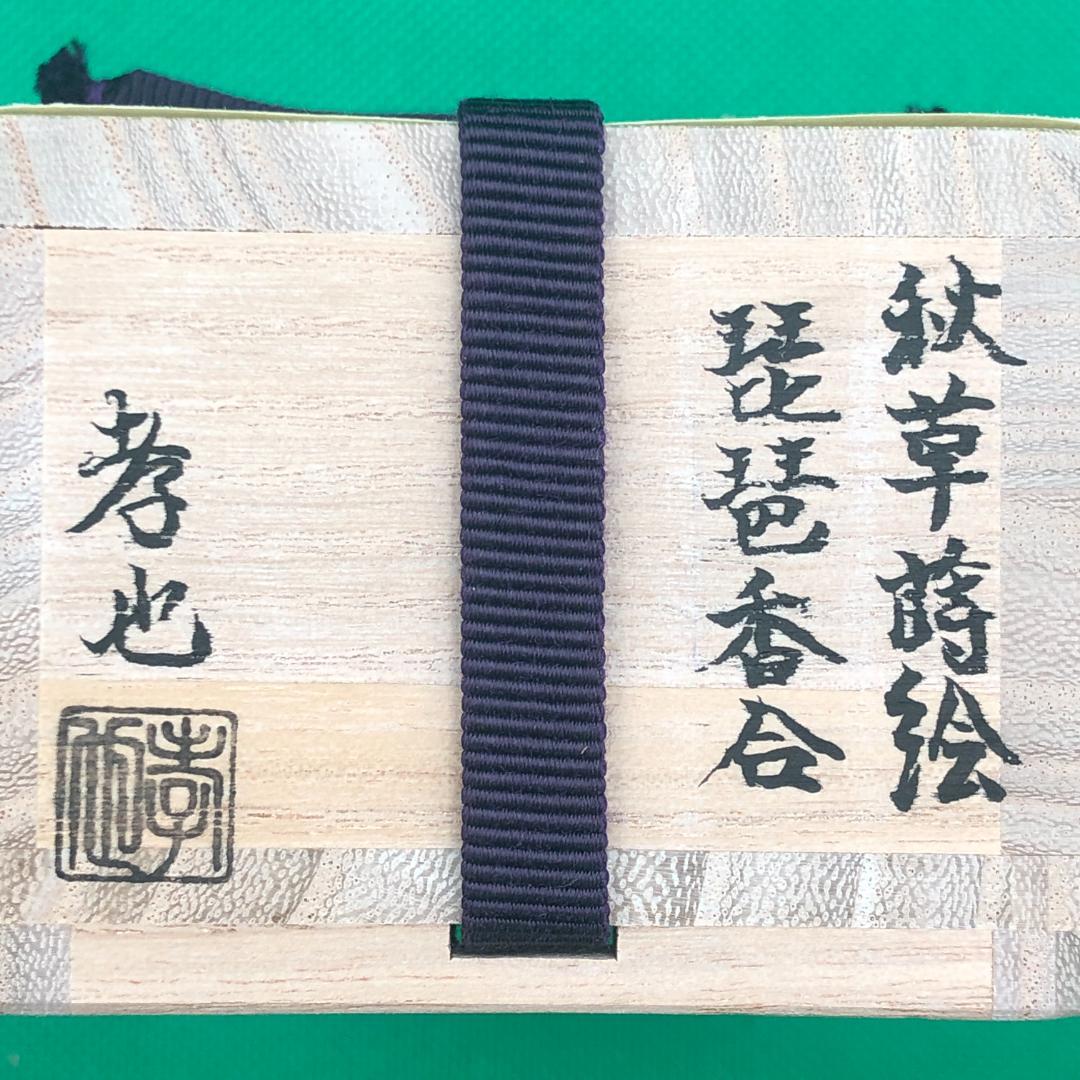 秋草蒔絵
琵琶香合
孝也
孝也